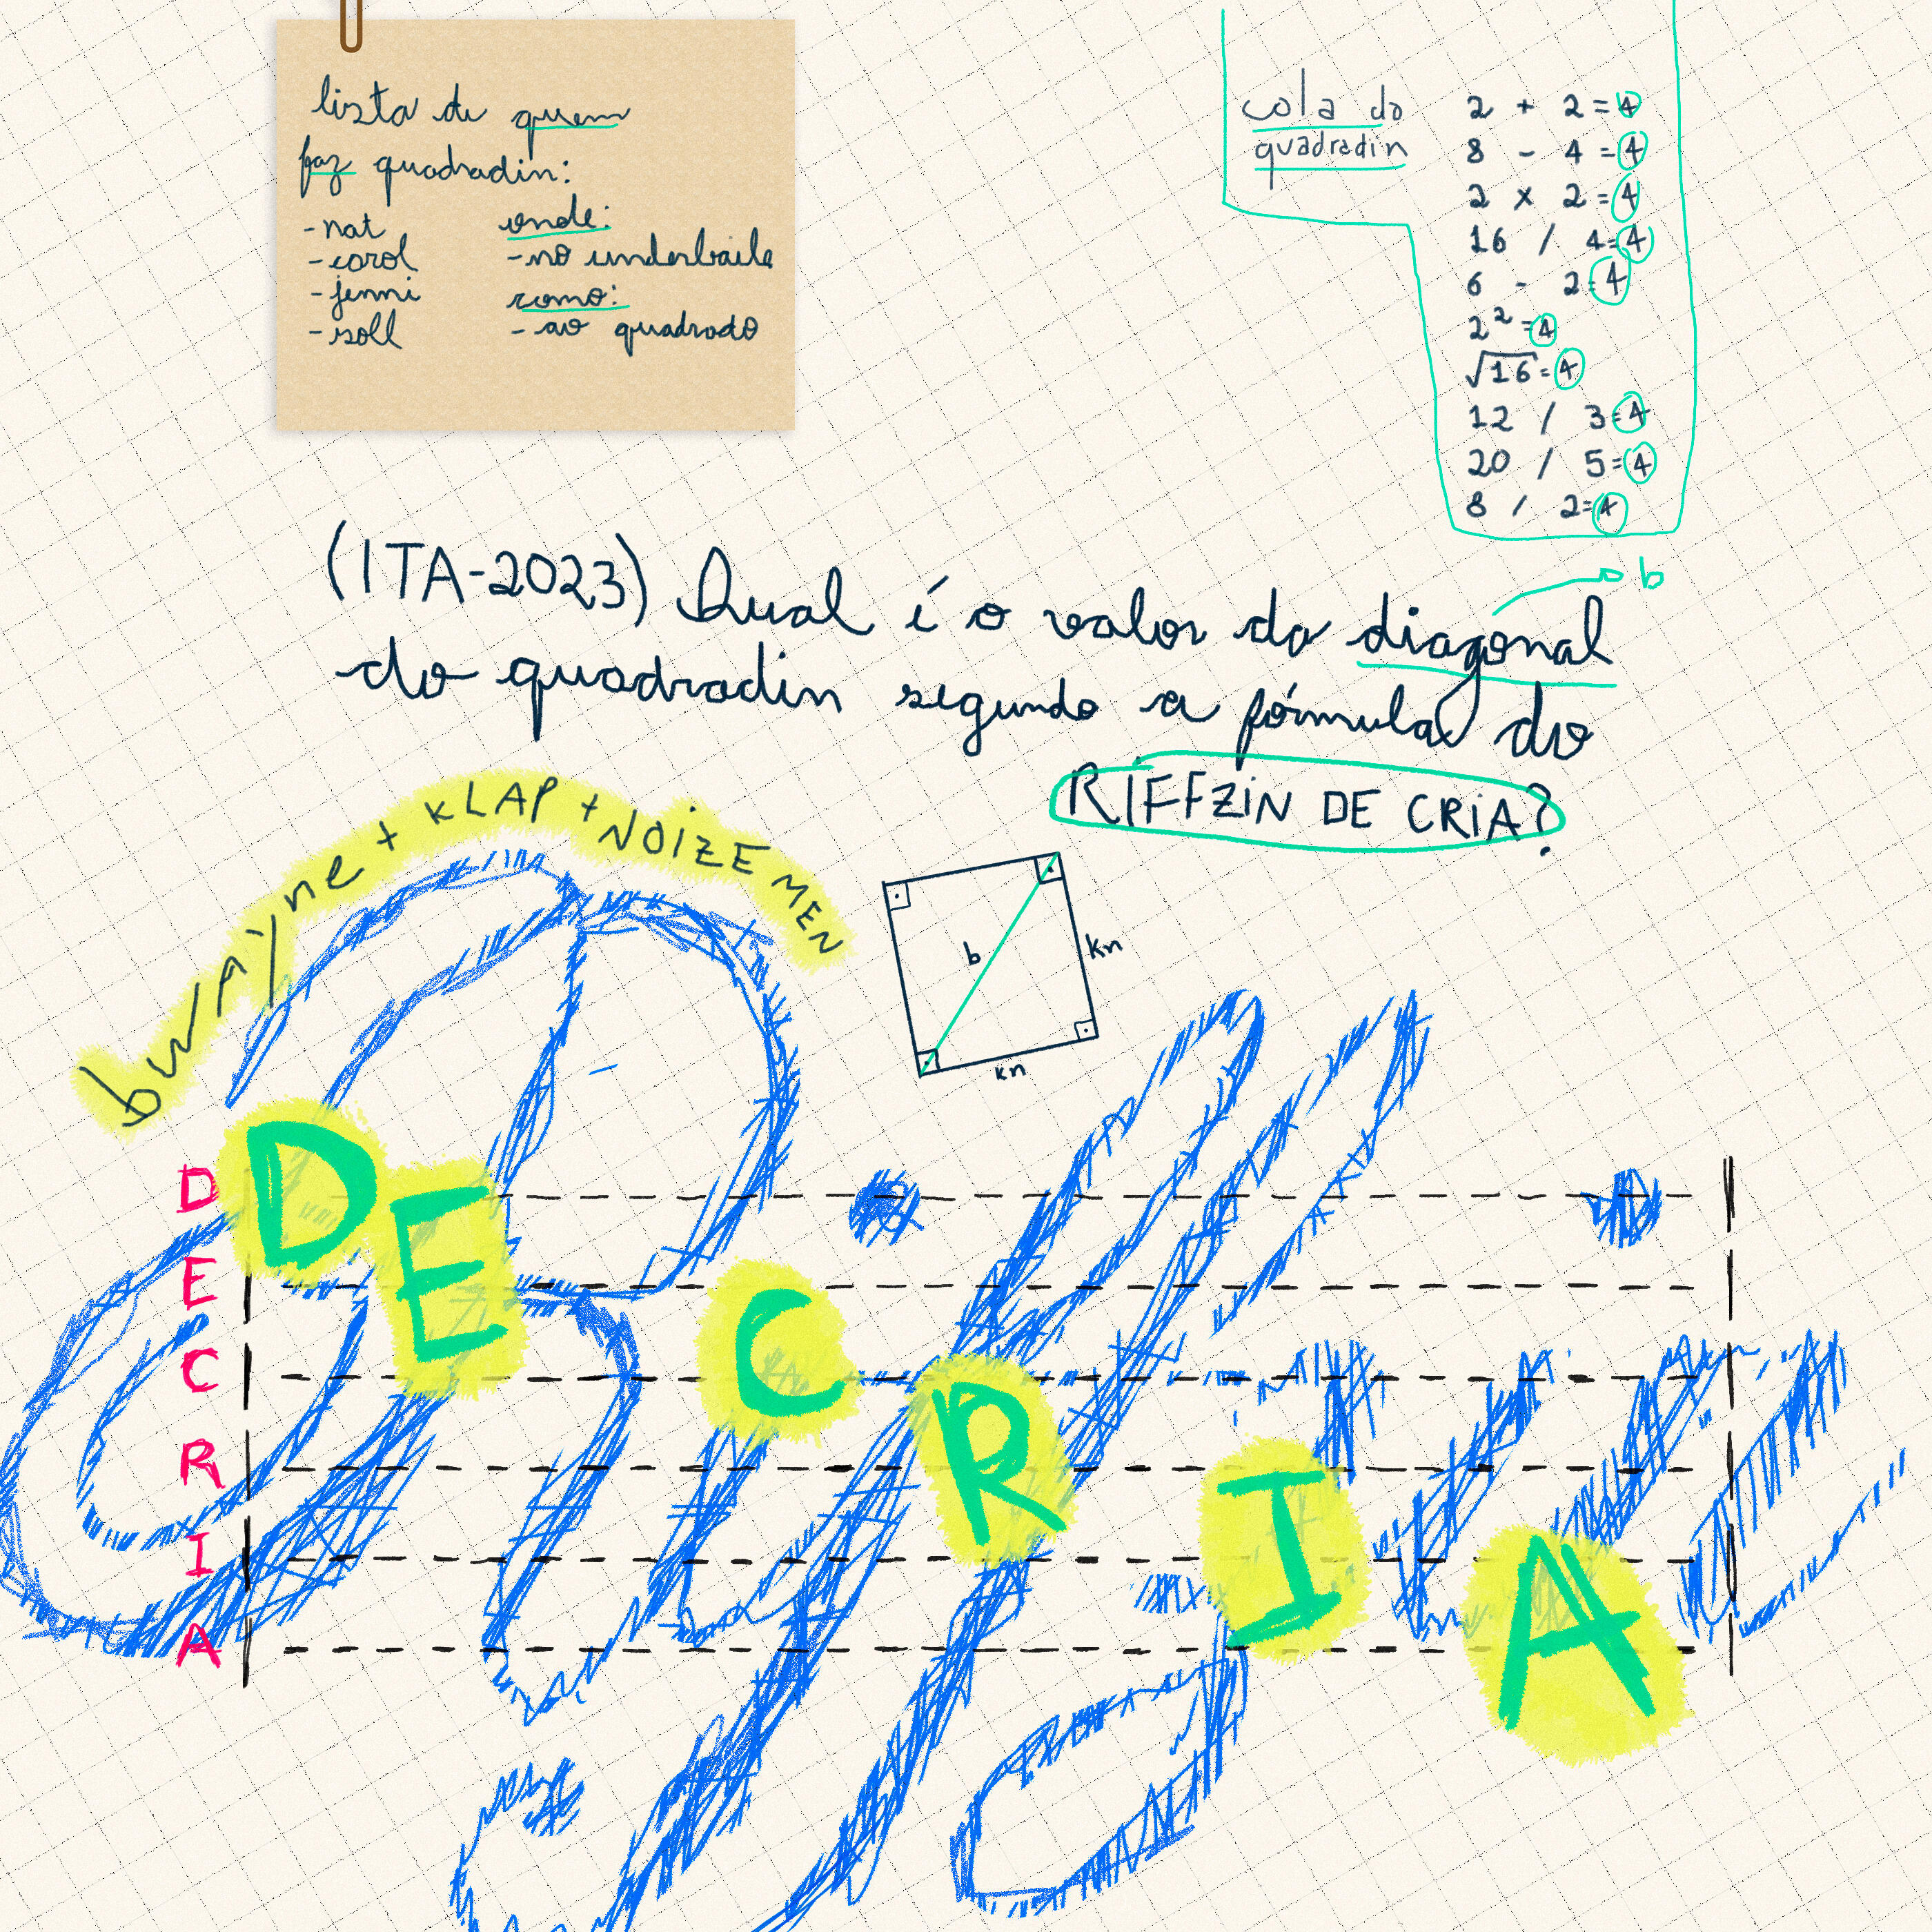 lista de quem
faz quadradin:
- nat
- carol
- jenni
- soll
onde:
- no underbaile
como:
- ao quadrado
cola do
quadradin
2 + 2 = 4
8 - 4 = 4
2 x 2 = 4
16 / 4 = 4
6 - 2 = 4
2² = 4
√16 = 4
12 / 3 = 4
20 / 5 = 4
8 / 2 = 4
b
(ITA-2023) Qual é o valor da diagonal
do quadradin segundo a fórmula do
RIFFZIN DE CRIA?
bWAYne + KLAP + NOIZE MEN
b
kn
kn
Riffzin
DE CRIA
D
E
C
R
I
A